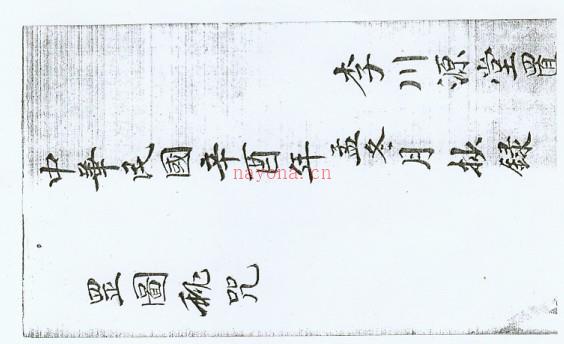 李川源堂置
中華民國辛酉年孟冬月抄錄
nayona.cn
罡圖秘咒